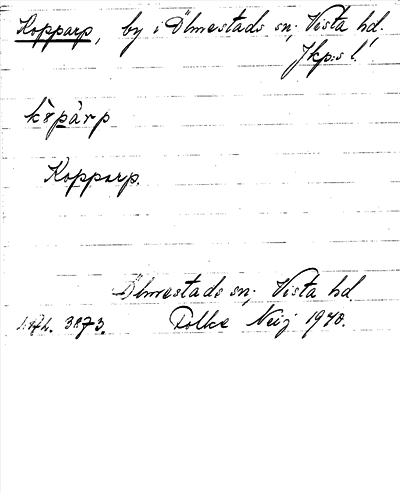 Kopparp, by i Ölmestads sn; Vista hd.
Jkp:s l.
Kopparp.
Ölmestads sn; Vista hd.
3873. Folke Neij 1940.